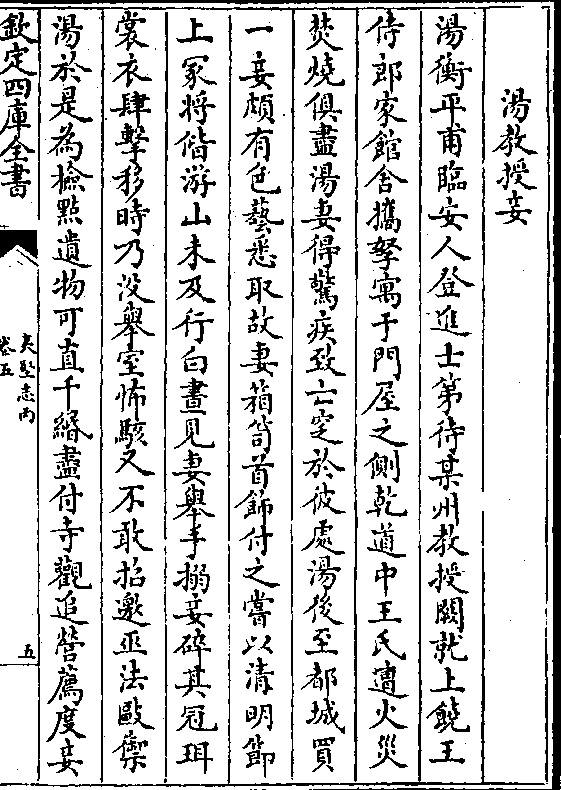 湯教授妾
湯衡平甫臨安人登進士第待某州教授闕就上饒王
侍郎家館舍攜孥寓于門屋之側乾道中王氏遭火災
焚燒俱盡湯妻得驚疾致亡窆於彼處湯後至都城買
一妾頗有色藝悉取故妻箱笥首飾付之嘗以清明節
上冢將偕游山未及行白晝見妻舉手搦妾碎其冠珥
裳衣肆擊移時乃没舉室怖駭又不敢招邀巫法毆禦
湯於是為檢點遺物可直千緡盡付寺觀追營薦度妾
欽定四庫全書
夷堅志丙
卷五
五